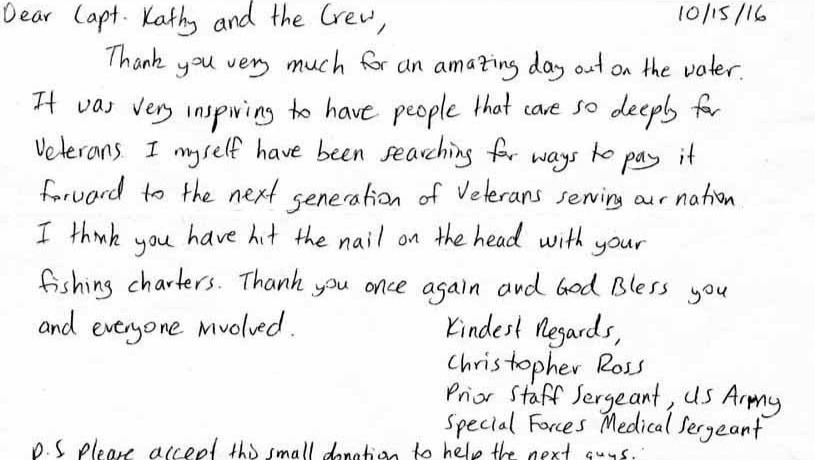 Dear Capt. Kathy and the Crew, 10/15/16
Thank you very much for an amazing day out on the water.
It was very inspiring to have people that care so deeply for
Veterans. I myself have been searching for ways to pay it
forward to the next generation of Veterans serving our nation
I think you have hit the nail on the head with your
fishing charters. Thank you once again and God Bless you
and everyone involved.
Kindest Regards,
Christopher Ross
Prior Staff Sergeant, US Army
Special Forces Medical Sergeant
P.S Please accept this small donation to help the next guys.